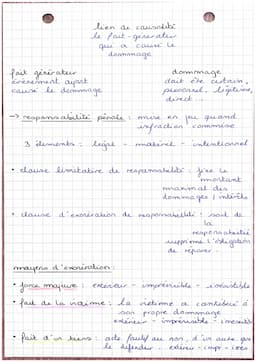 lien de causalité
le fait-générateur
qui a causé le
dommage
fait générateur
dommage
évènement ayant
doit être certain,
causé le dommage
personnel, légitime,
direct
→ responsabilité pénale : mise en jeu quand
infraction commise
3 éléments : légal - matériel - intentionnel
• clause limitative de responsabilité : fixe le
montant
maximal des
dommages / intérêts
• clause d'exonération de responsabilité : soit de
la
responsabilité
supprime l'obligation
de réparer
moyens d'exonération :
• force majeure : extérieur - imprévisible - irrésistible
• fait de la victime : la victime a contribué à
son propre dommage
extérieur - imprévisible - irrésistible
• fait d'un tiers : acte fautif ou non, d'un autre que
le défendeur - extérieur - imp - irrés